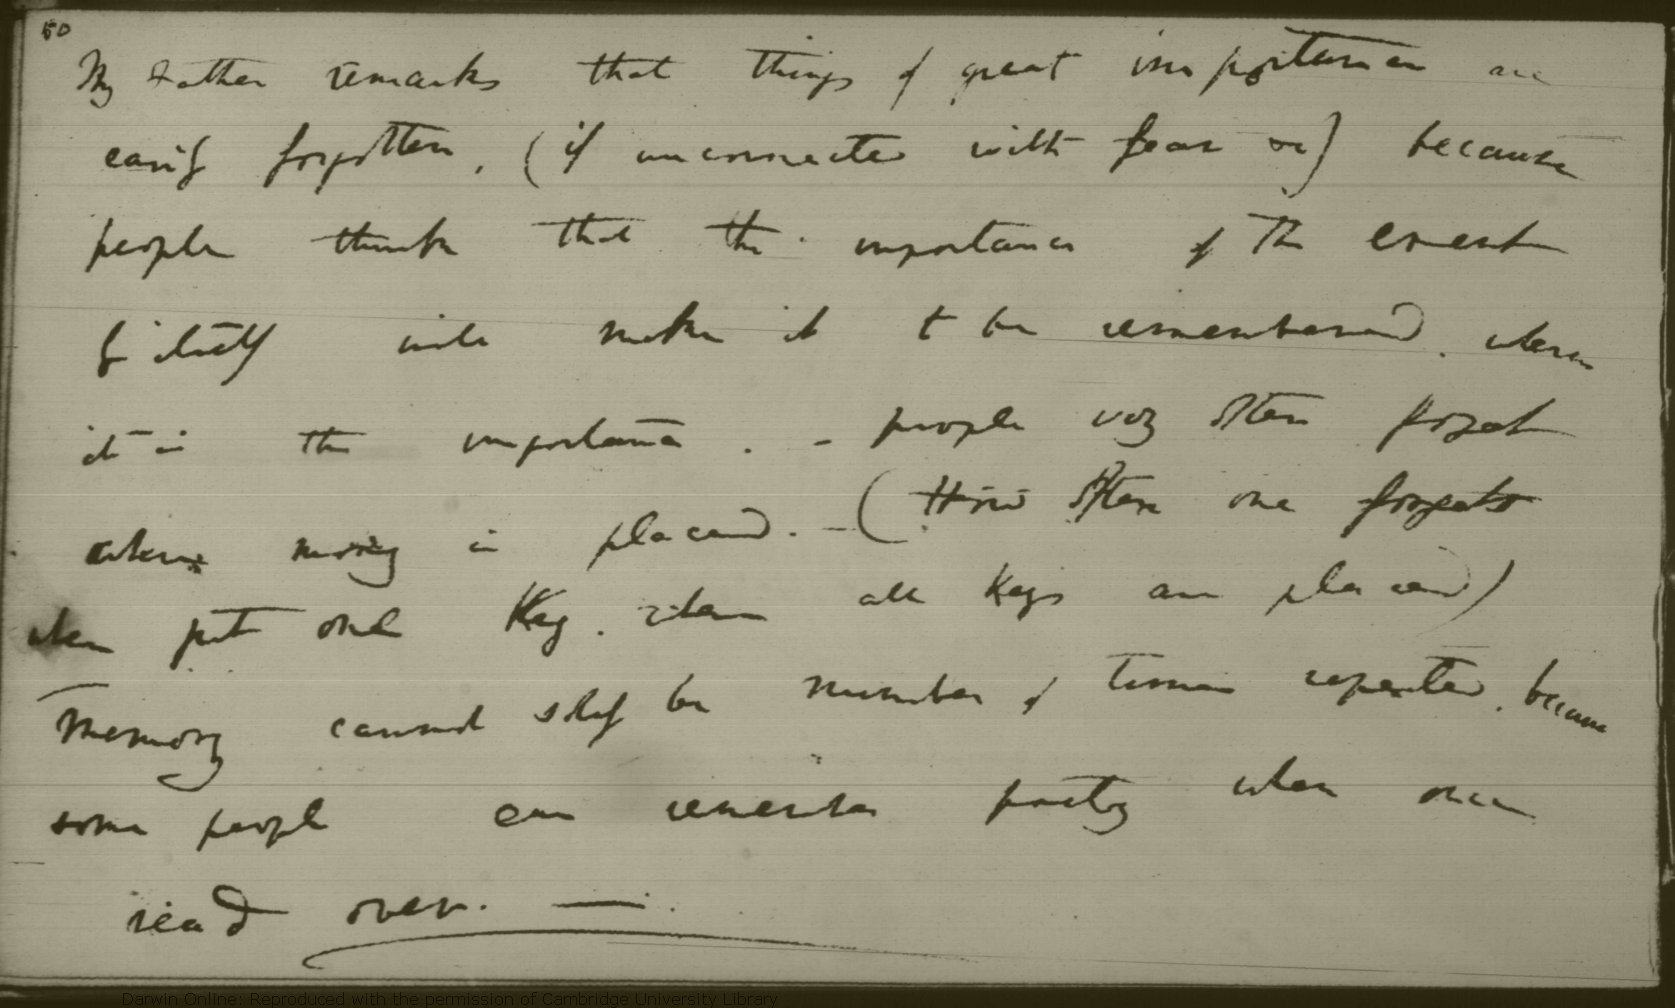 50
My Father remarks that things of great importance are
easily forgotten, (if unconnected with fear &c) because
people think that the importance of the event
by itself will make it to be remembered. whereas
it is the importance. — people very often forget
where money is placed. — (How often one forgets
where put one key. when all keys are placed)
Memory cannot solely be number of times repeated. because
some people can remember poetry when once
read over. —
Darwin Online: Reproduced with the permission of Cambridge University Library